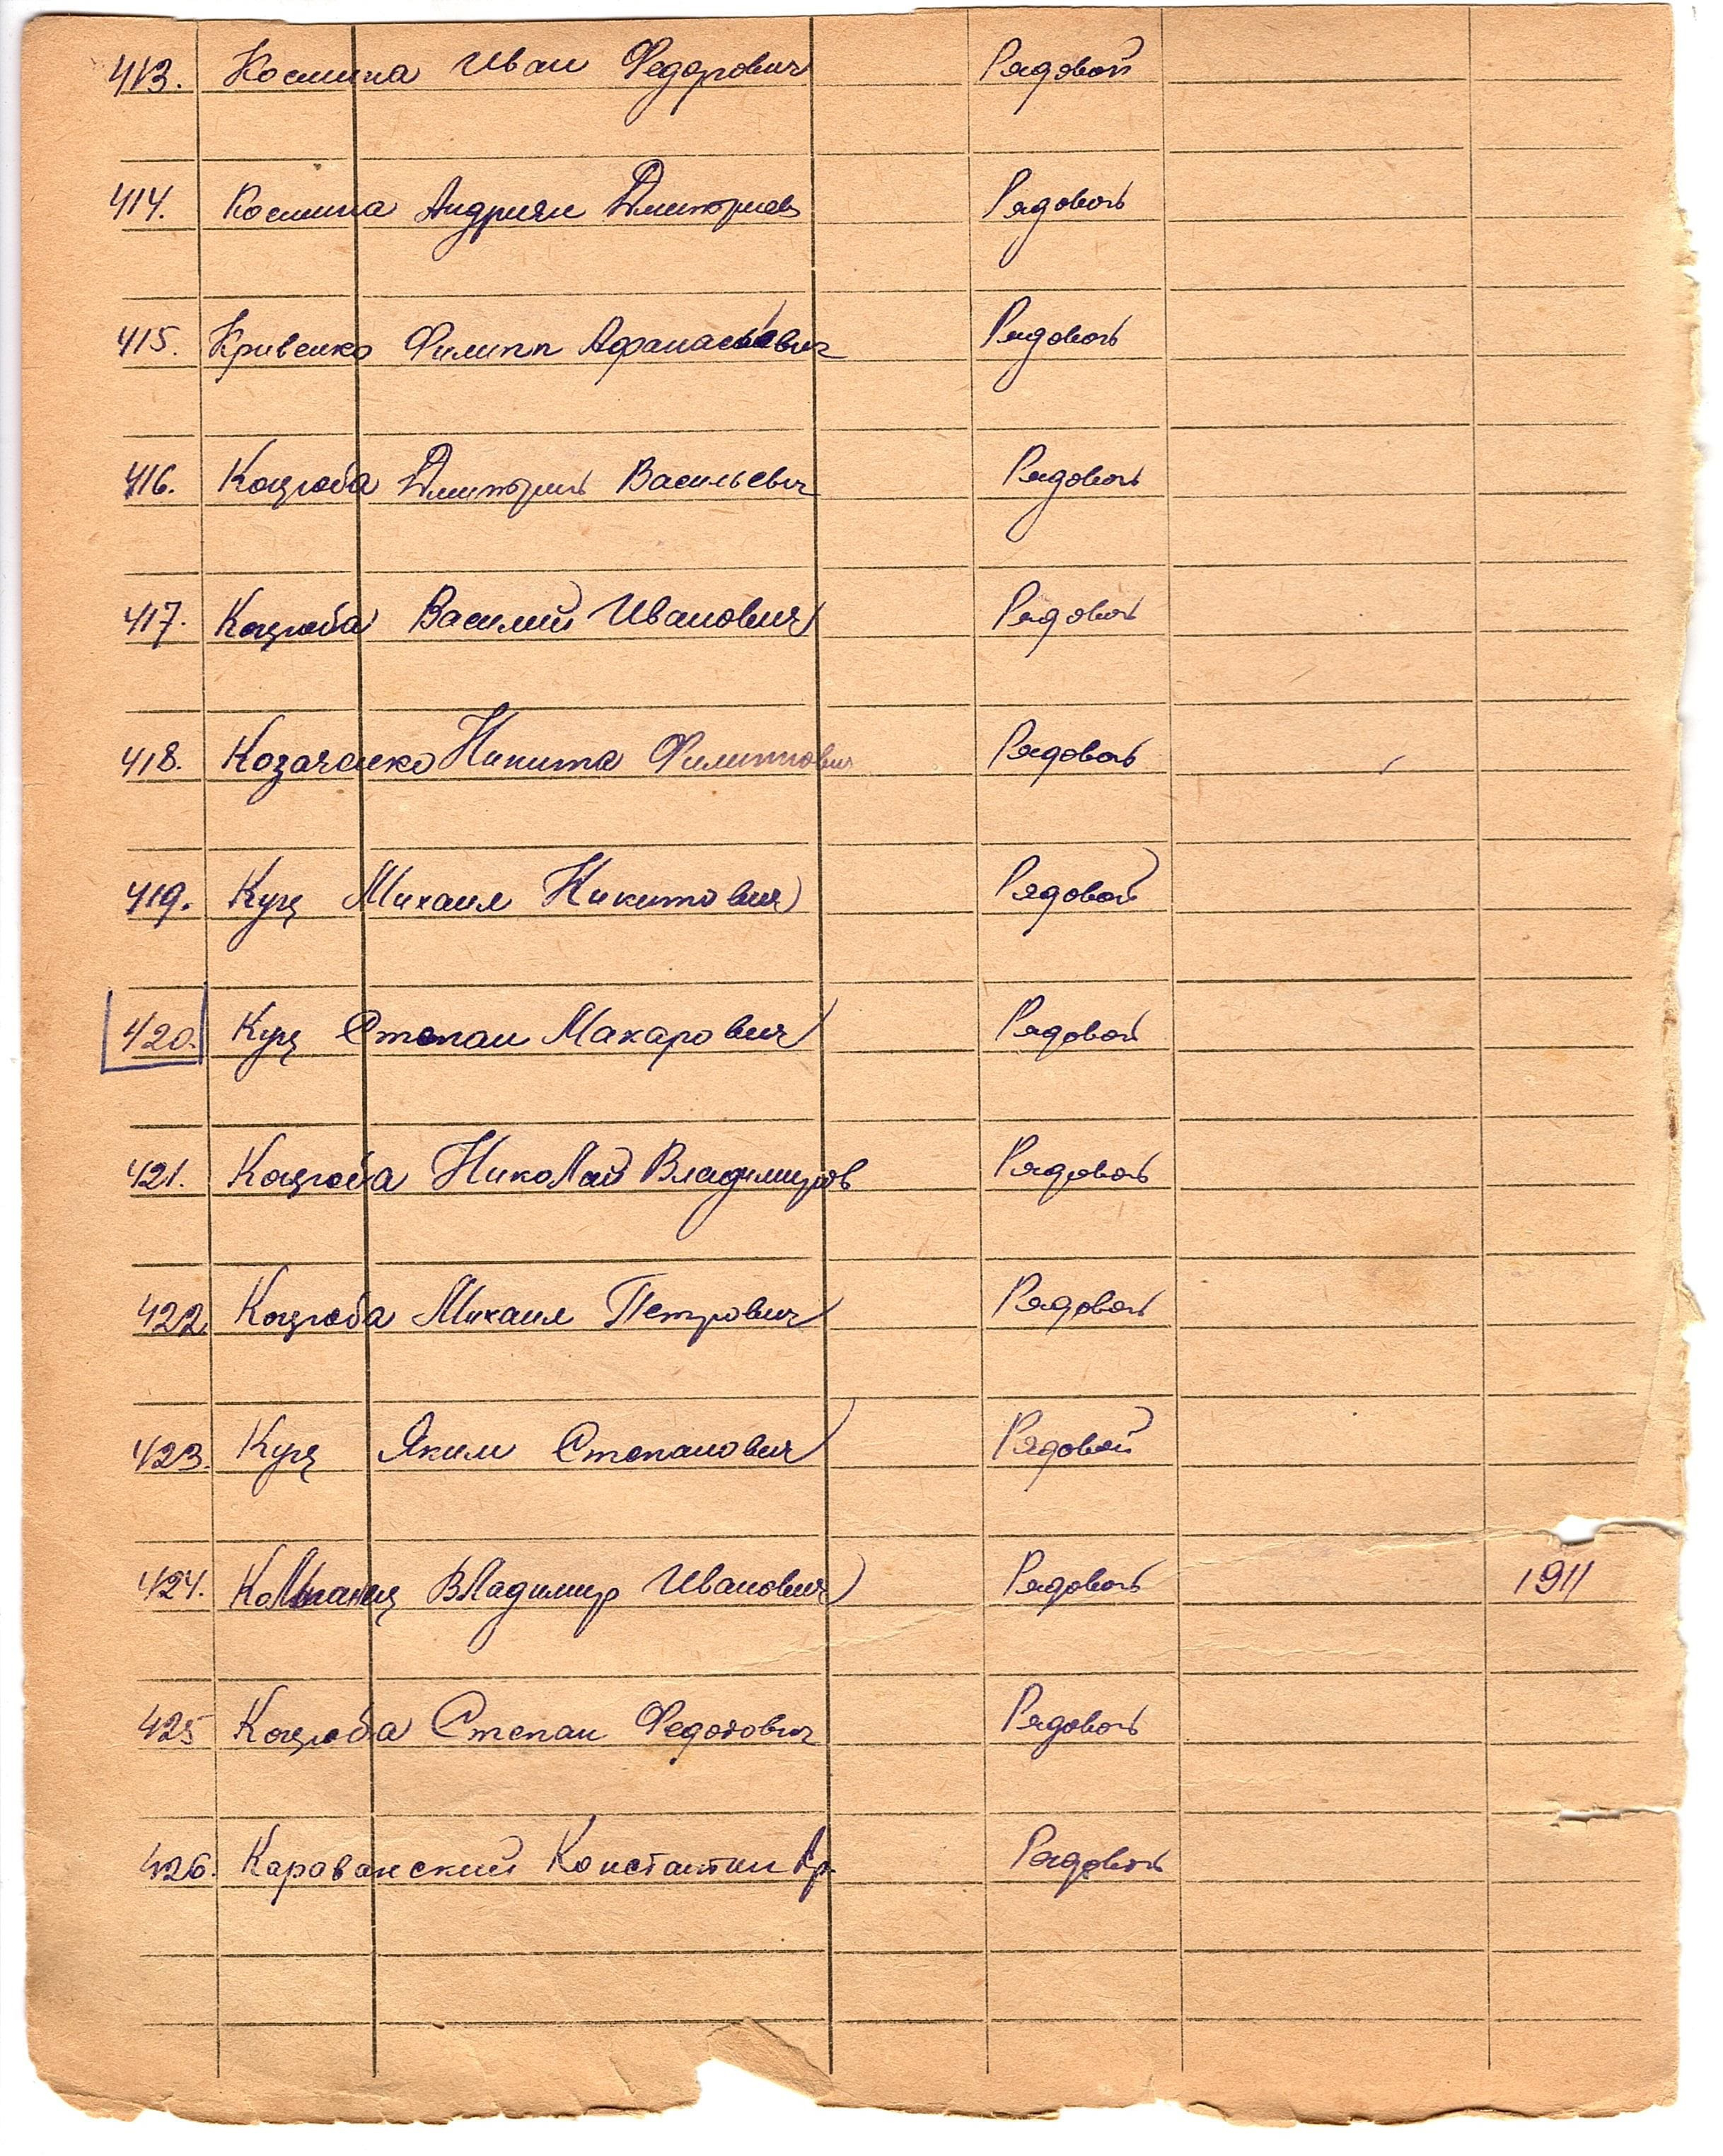 413. Космина Иван Федорович Рядовой
414. Космина Андриян Дмитриев Рядовой
415. Кривенко Филипп Афанасьевич Рядовой
416. Коцюба Дмитрий Васильевич Рядовой
417. Коцюба Василий Иванович Рядовой
418. Козаченко Никита Филиппович Рядовой
419. Куц Михаил Никитович Рядовой
420. Куц Степан Макарович Рядовой
421. Коцюба Николай Владимиров Рядовой
422. Коцюба Михаил Петрович Рядовой
423. Куц Яким Степанович Рядовой
424. Владимир Иванович Рядовой 1911
425 Коцюба Степан Федотович Рядовой
426. Караванский Константин Рядовой